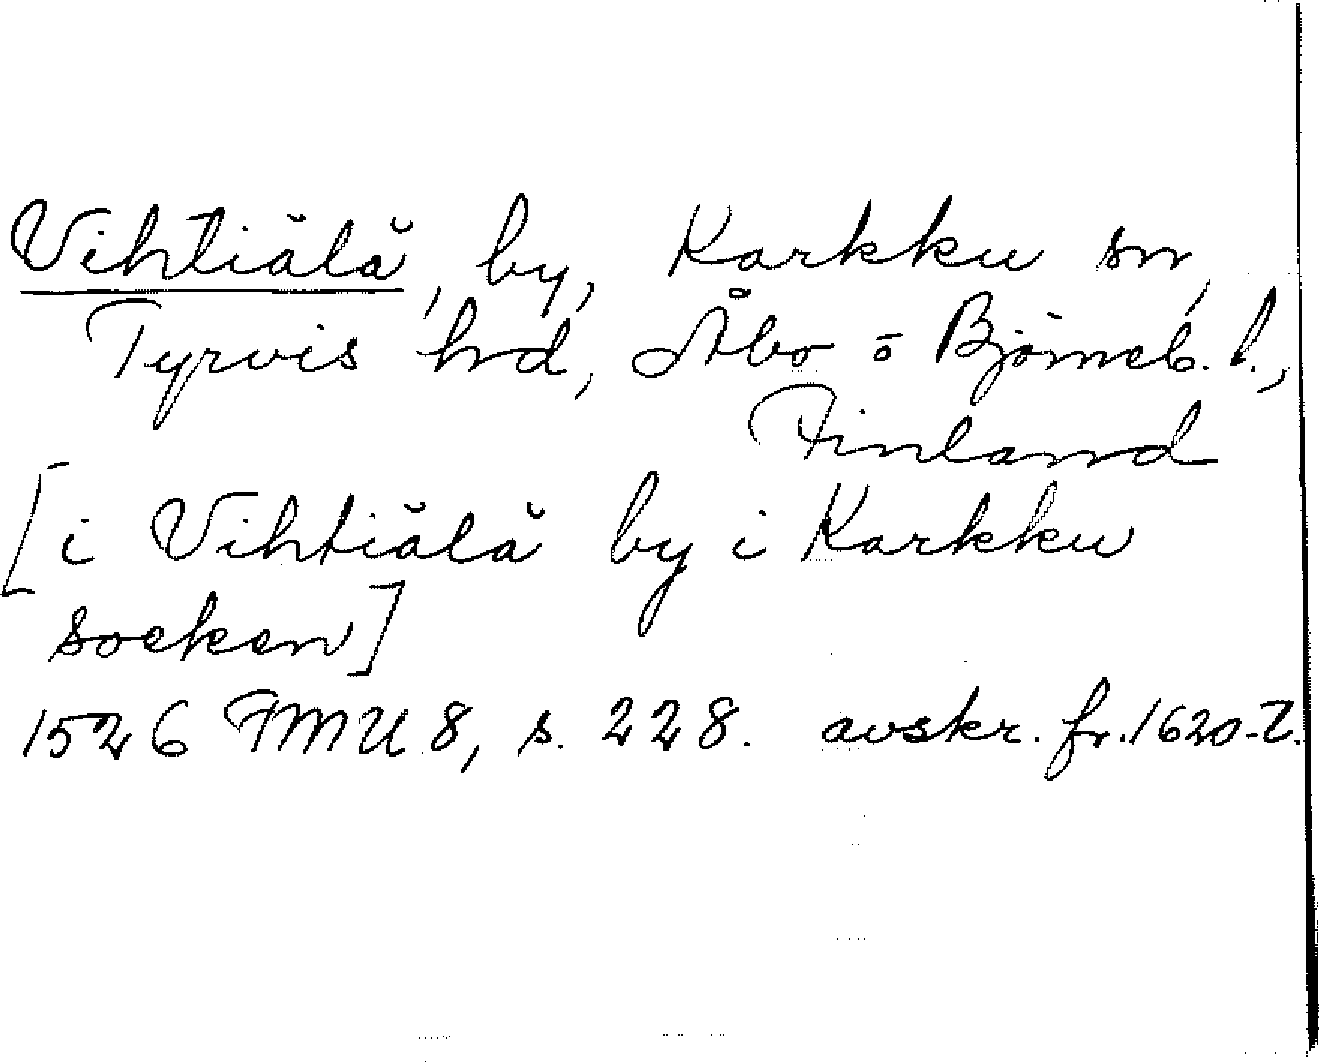 Vihtiälä, by, Karkku sn,
Tyrvis hrd, Åbo o Björneb. l.,
Finland
[i Vihtiälä by i Karkku
socken]
1526 FMU 8, s. 228. avskr. fr. 1620-t.